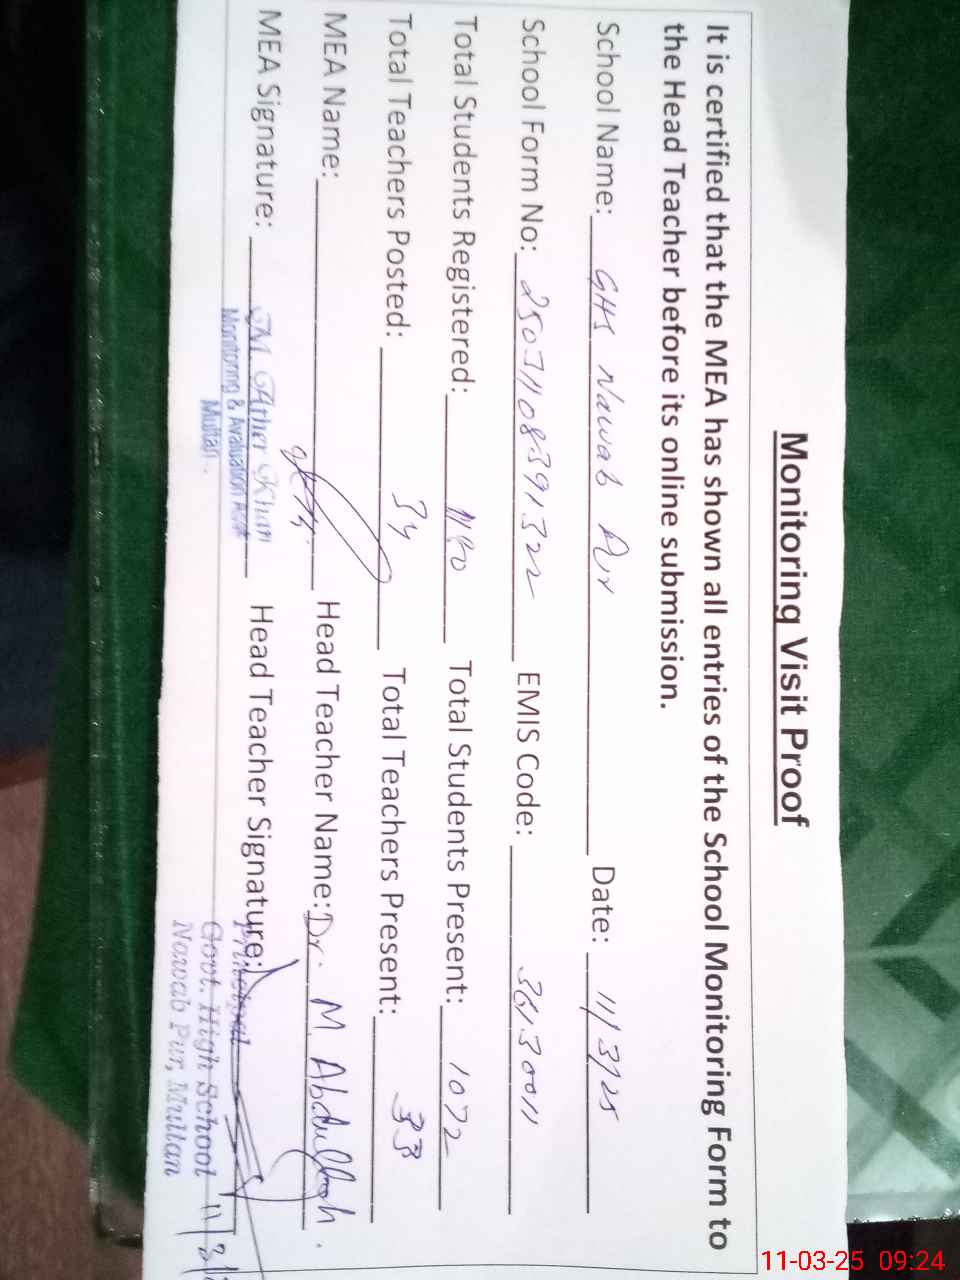 Monitoring Visit Proof
It is certified that the MEA has shown all entries of the School Monitoring Form to
the Head Teacher before its online submission.
School Name: GHS Nawab Pur Date: 11/3/25
School Form No: 25031108391322 EMIS Code: 36130011
Total Students Registered: 1140 Total Students Present: 1072
Total Teachers Posted: 34 Total Teachers Present: 33
MEA Name: Head Teacher Name: Dr. M Abdullah.
MEA Signature: Head Teacher Signature:
M. Ather Khan
Monitoring & Avaluation
Multan.
Principal
Govt. High School
Nawab Pur, Multan
11/3/
11-03-25 09:24